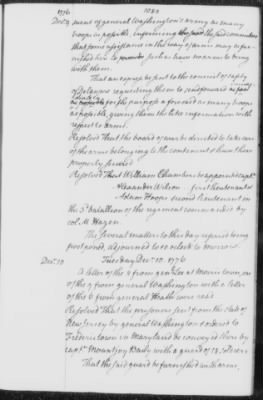 1776 1083
Dec. 9 ment of general Washington's army as many
troops as possible, informing the said committee
that some assistance in the way of arms may be fur-
nished here to such as have no arms to bring
with them.
That an express be sent to the council of safety
of Delaware requesting them to send forward
for the purpose aforesaid as many troops
as possible, giving them the like information with
respect to arms.
Resolved That the board of war be directed to take care
of the arms belonging to the continent & have them
properly secured
Resolved That William Chambers be appointed capt.
Alexander Wilson first lieutenant &
Adam Hoops second lieutenant in
the 3d. battalion of the regiment commanded by
col. M. Hazen.
The several matters to this day referred being
postponed, adjourned to 10 o'clock to morrow.
Dec. 10 Tuesday Dec. 10. 1776
A letter of the 8 from genl. Lee at Morris town, one
of the 9 from general Washington with a letter
of the 8 from general Heath were read
Resolved That the prisoners sent from the state of
New Jersey by general Washington & ordered to
Frederic town in Maryland be conveyed there by
capt. Mountjoy Baily with a guard of 12 soldiers.
That the said guard be furnished with arms.